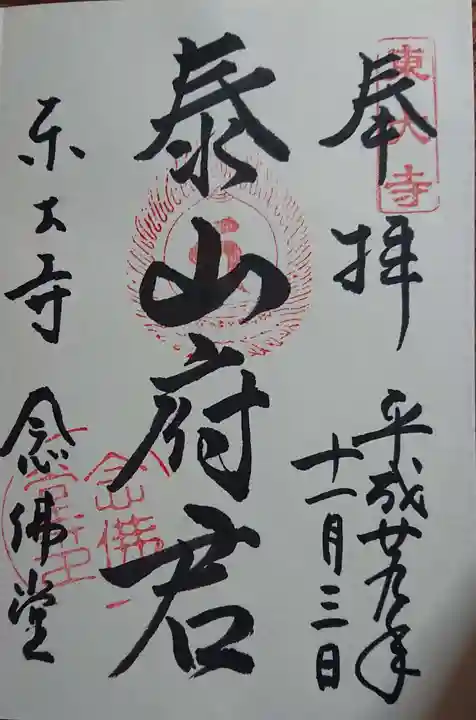 東大寺
奉拝
平成廿九年
十一月三日
泰山府君
东大寺 念佛堂
念佛